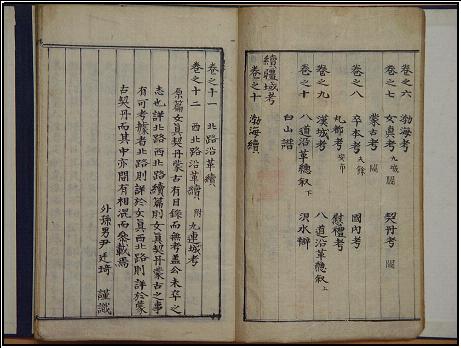 卷之六 渤海考
卷之七 女眞考 九城闕 契丹考 闕
蒙古考 闕
卷之八 卒本考 夫餘 國內考
丸都考 安市 慰禮考
卷之九 漢城考 八道沿革總敍上
八道沿革總敍下 浿水辯
白山譜
續疆域考
卷之十 渤海續
卷之十一 北路沿革續
卷之十二 西北路沿革續 附九連城考
原篇女眞契丹蒙古有目錄而無考盖公未卒之
志也詳北路西北路續篇則女眞契丹蒙古之事
有可考據者北路則詳於女眞西北路則詳於蒙
古契丹而其中亦間有相混而參載焉
外孫男尹廷琦 謹識